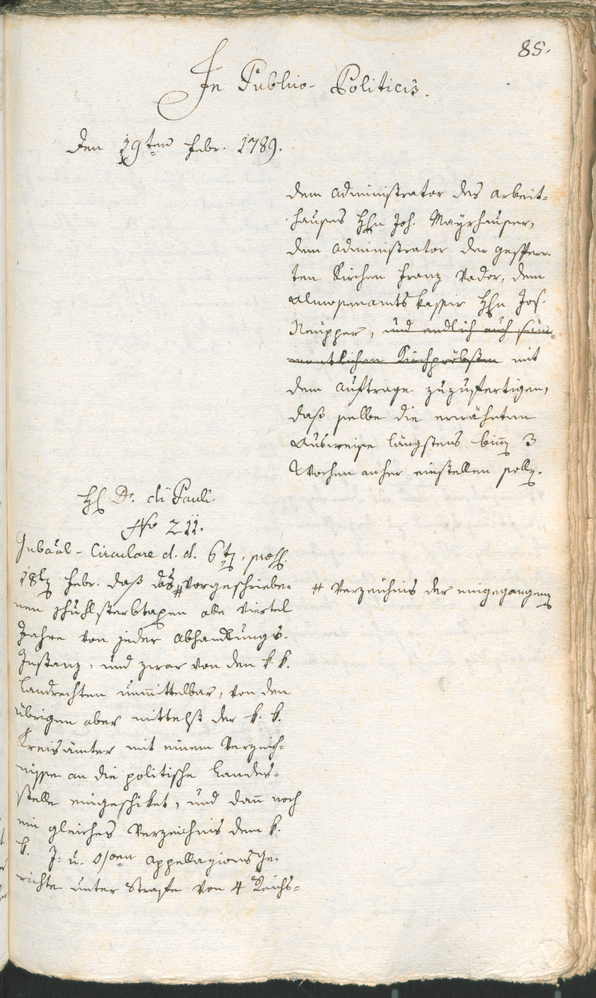 85.
In Publico-Politicis.
Den 19ten Febr. 1789.
dem Administrator des Arbeit-
hauses Hhn Joh. Mayrhauser,
dem Administrator der gesperr-
ten Kirchen Franz Vader, dem
Almosenamts Kassier Hhn Jos.
Neupper, und endlich auch säm-
mentlichen Kirchpröbsten mit
dem Auftrage zuzufertigen,
daß selbe die erwähnten
Ausweise längstens bin̅ 3
Wochen anher einstellen solln.
H Dr. di Pauli.
No 211.
Gubäal-Circulare d. d. 6t, praes
18t Febr. daß das # vorgeschriebe-
nen Schuhlsterbtaxen alle Viertel
Jahre von jeder Abhandlungs-
Instanz, und zwar von den k. k.
Landrechten unmittelbar, von den
übrigen aber mittelst der k. k.
Kreisämter mit einem Verzeich-
nisse an die politische Landes-
stelle eingeschiket, und dan̅ noch
ein gleiches Verzeichnis dem k.
k. I. u. O/oen Appellazionsge-
richte unter Strafe von 4 Reichs-
# Verzeichnis der eingegangen